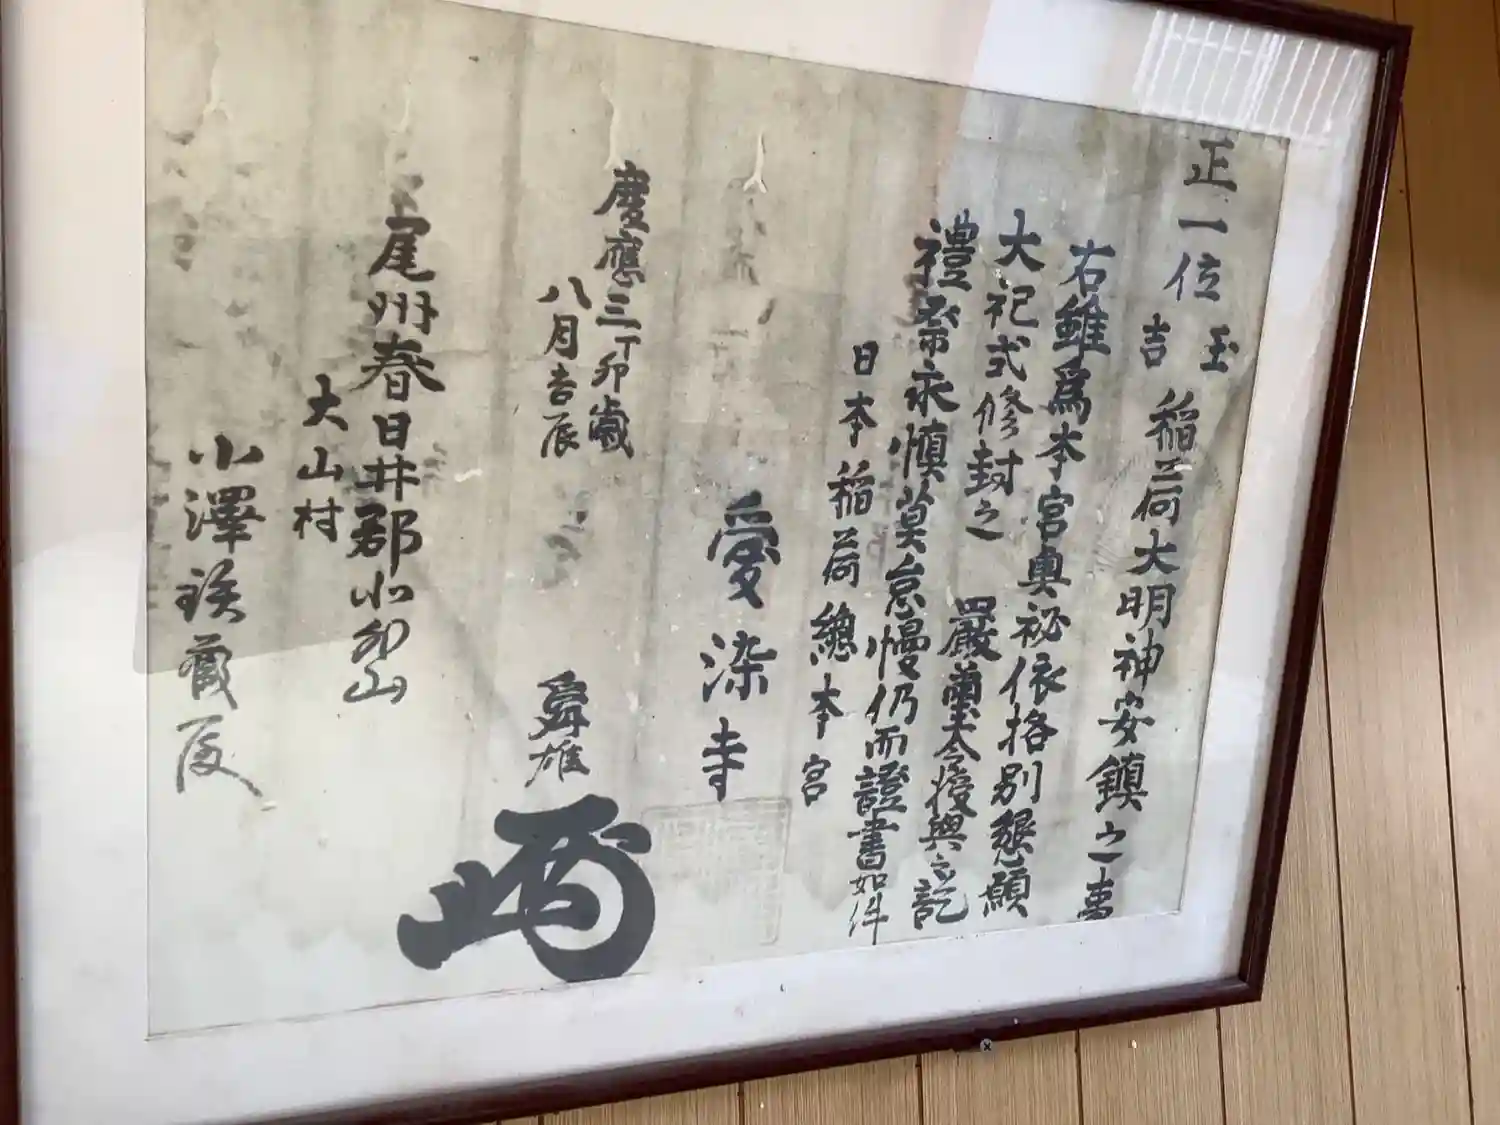 正一位玉吉稲荷大明神安鎮之事
右雖爲本宮奥祕依格別懇願
大祀式修封之 嚴璽令授與之訖
禮祭永慎莫怠慢仍而證書如件
日本稲荷總本宮
愛染寺
慶應三丁卯歳
八月吉辰
雄
尾州春日井郡小
大山村
小澤 藏殿